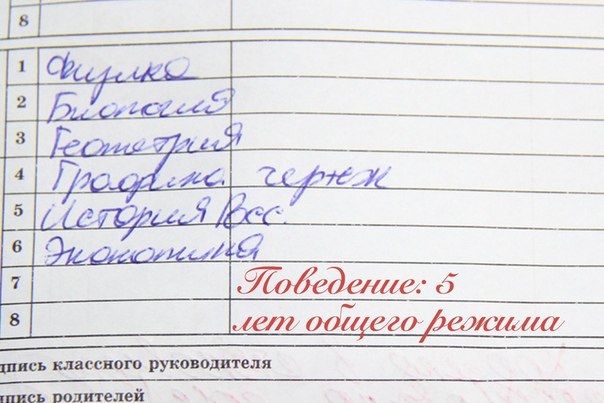 8
1 Физика
2 Биология
3 Геометрия
4 Графика чертеж
5 История Росс.
6 Экономика
7 Поведение: 5
8 лет общего режима
дпись классного руководителя
пись родителей